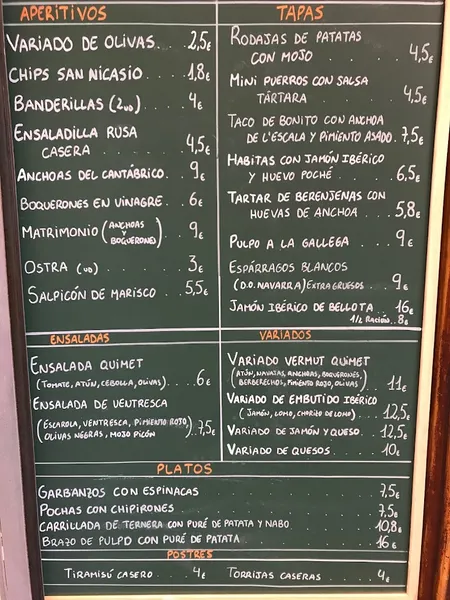 APERITIVOS
VARIADO DE OLIVAS . . . 2,5€
CHIPS SAN NICASIO . . . 1,8€
BANDERILLAS (2UD) . . . 4€
ENSALADILLA RUSA
CASERA . . . 4,5€
ANCHOAS DEL CANTÁBRICO . 9€
BOQUERONES EN VINAGRE . . 6€
MATRIMONIO (ANCHOAS Y BOQUERONES) . . 9€
OSTRA (UD) . . . . 3€
SALPICÓN DE MARISCO . . 5,5€
TAPAS
RODAJAS DE PATATAS
CON MOJO . . . 4,5€
MINI PUERROS CON SALSA
TÁRTARA . . . 4,5€
TACO DE BONITO CON ANCHOA
DE L'ESCALA Y PIMIENTO ASADO. 7,5€
HABITAS CON JAMÓN IBÉRICO
Y HUEVO POCHÉ . . . 6,5€
TARTAR DE BERENJENAS CON
HUEVAS DE ANCHOA . . . 5,8€
PULPO A LA GALLEGA . . 9€
ESPÁRRAGOS BLANCOS
(D.O. NAVARRA) EXTRA GRUESOS . 9€
JAMÓN IBÉRICO DE BELLOTA . . 16€
1/2 RACIÓN . 8€
ENSALADAS
ENSALADA QUIMET
(TOMATE, ATÚN, CEBOLLA, OLIVAS) . . . 6€
ENSALADA DE VENTRESCA
(ESCAROLA, VENTRESCA, PIMIENTO ROJO,
OLIVAS NEGRAS, MOJO PICÓN) . 7,5€
VARIADOS
VARIADO VERMUT QUIMET
(ATÚN, NAVAJAS, ANCHOAS, BOQUERONES,
BERBERECHOS, PIMIENTO ROJO, OLIVAS) . . 11€
VARIADO DE EMBUTIDO IBÉRICO
(JAMÓN, LOMO, CHORIZO DE LOMO) . . . 12,5€
VARIADO DE JAMÓN Y QUESO . . 12,5€
VARIADO DE QUESOS . . . 10€
PLATOS
GARBANZOS CON ESPINACAS . . . 7,5€
POCHAS CON CHIPIRONES . . . 7,5€
CARRILLADA DE TERNERA CON PURÉ DE PATATA Y NABO . . . 10,8€
BRAZO DE PULPO CON PURÉ DE PATATA . . . 16€
POSTRES
TIRAMISÚ CASERO . . . 4€
TORRIJAS CASERAS . . . 4€